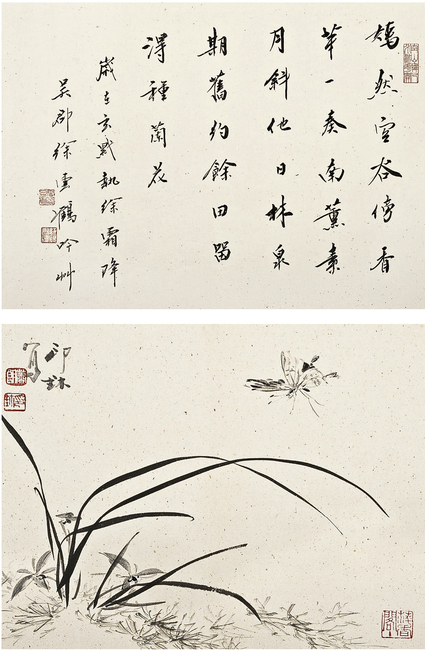 嫣然空谷傳香
華一奏南薰素
月斜他日林泉
期舊約餘田留
得種蘭花
歲在玄黓執徐霜降
吳郡徐雲鶴吟艸
林
寫